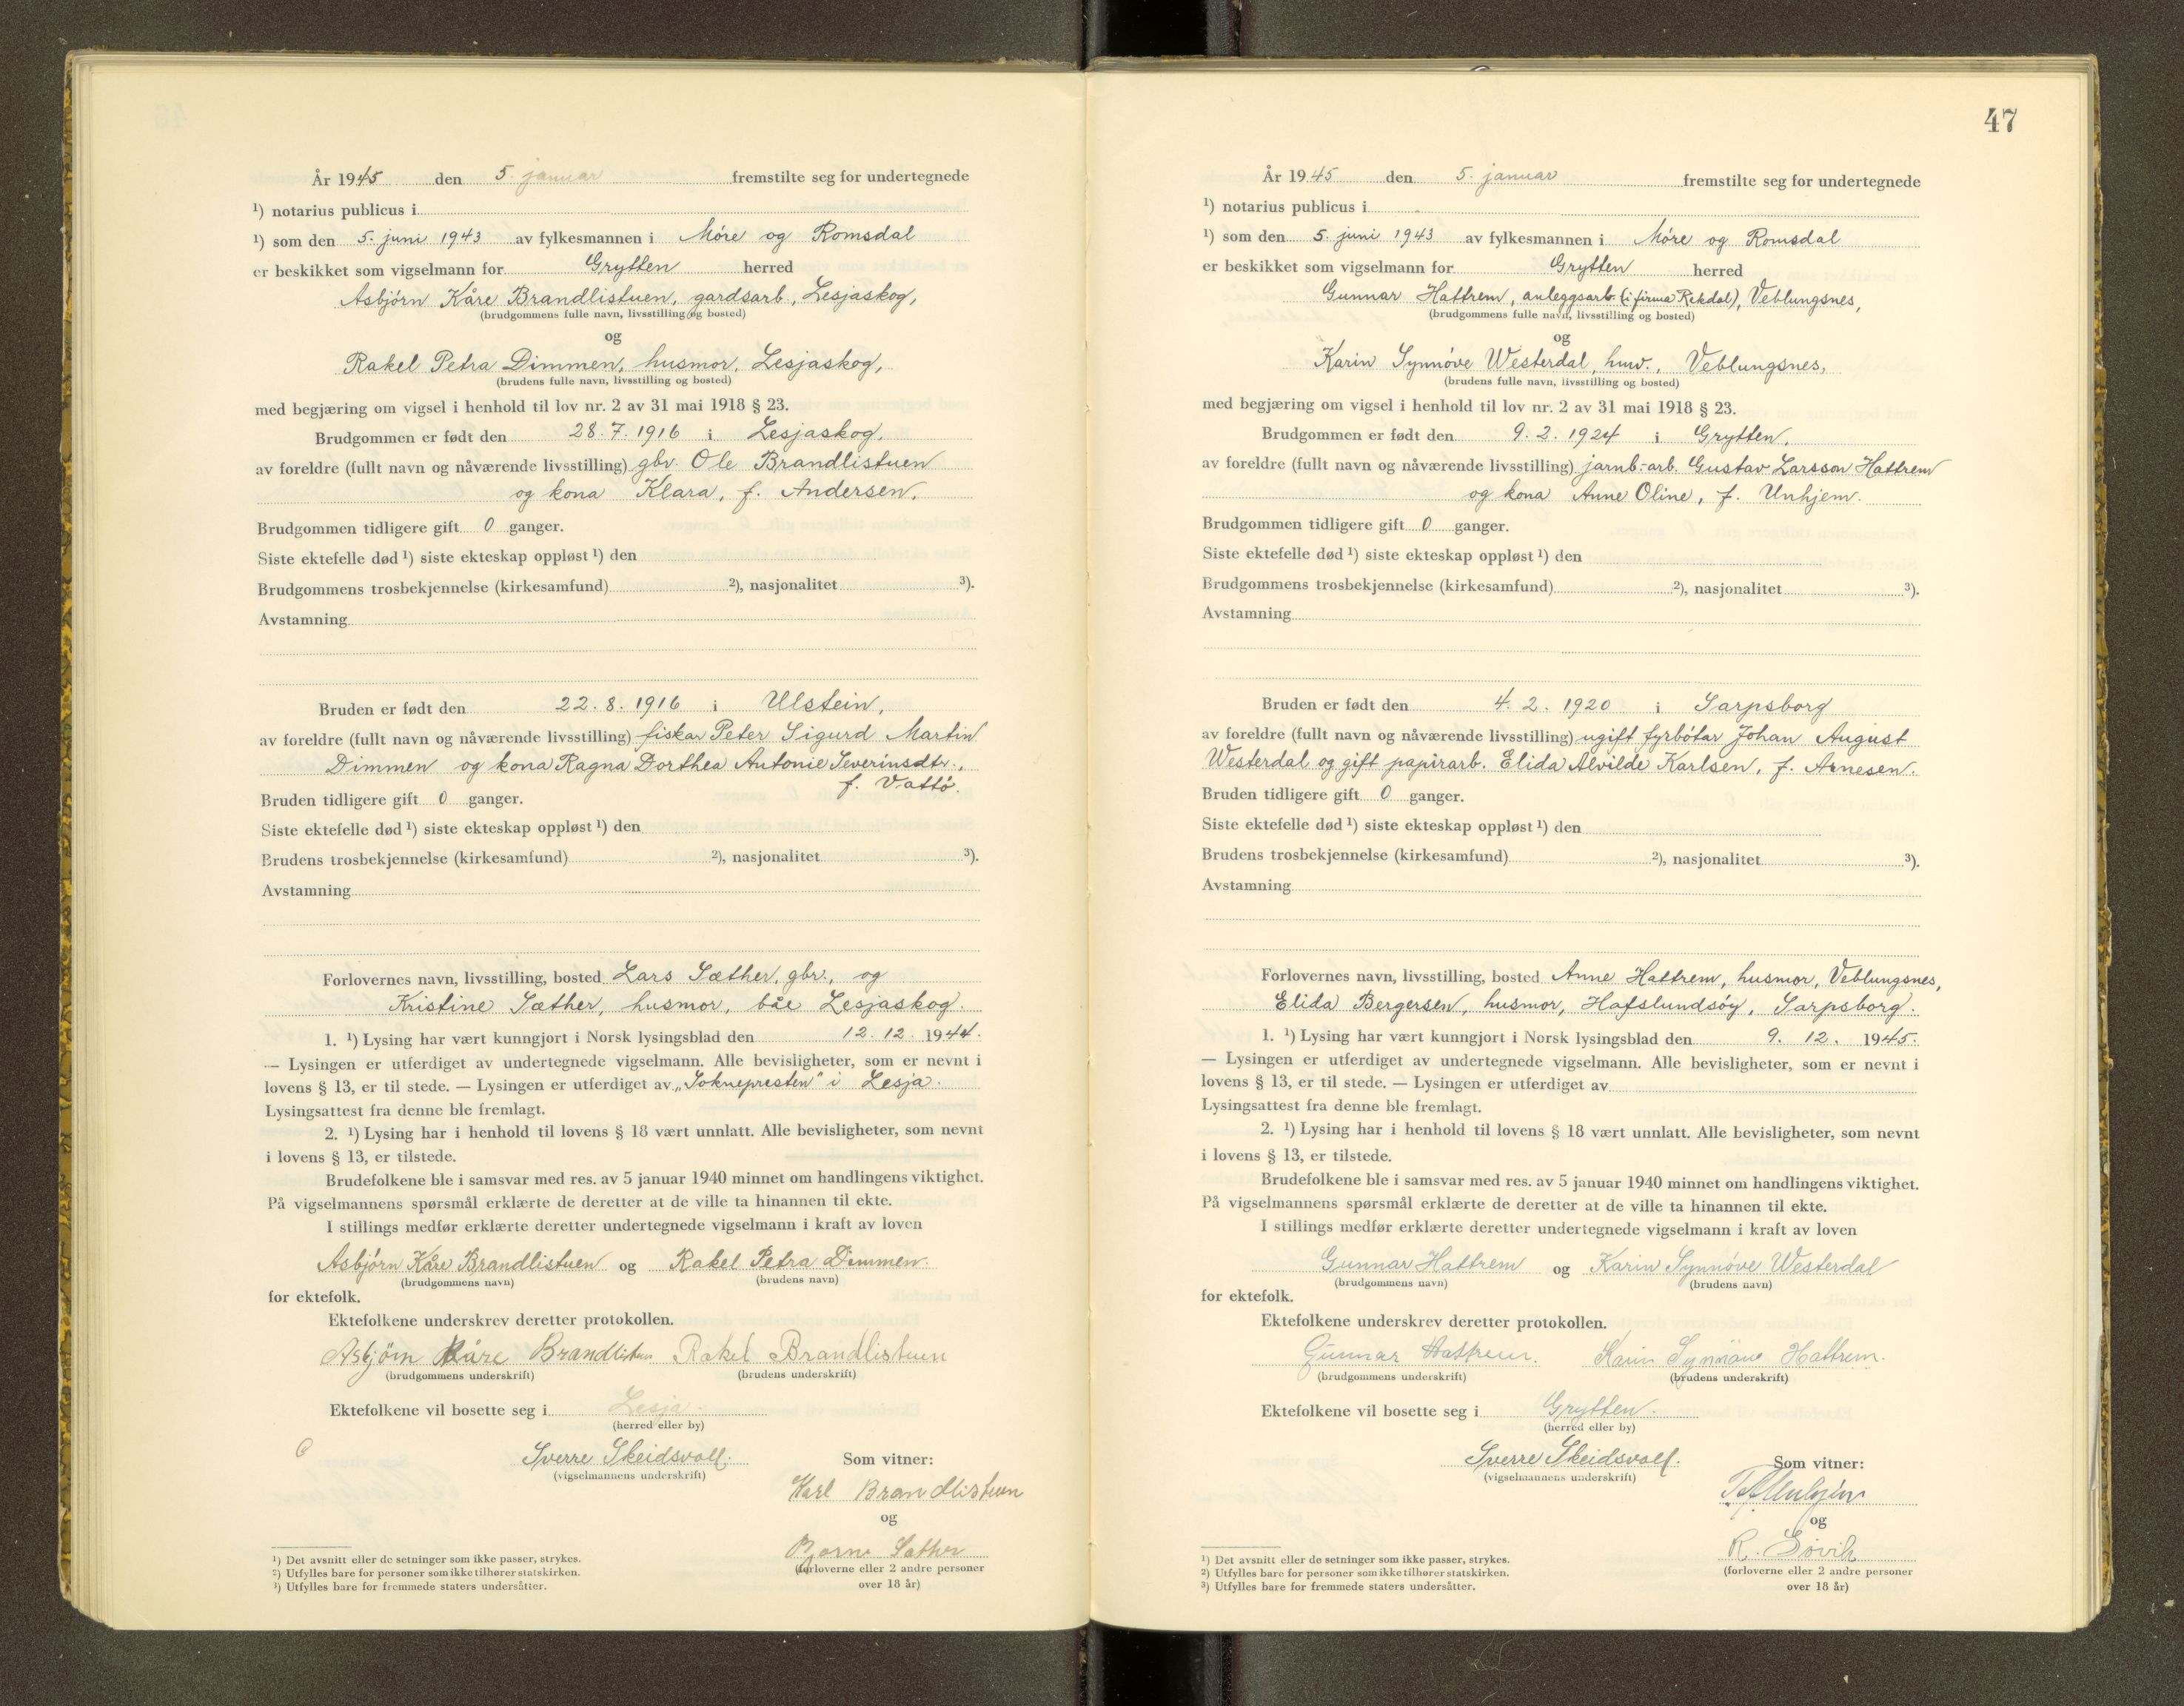 År 1945 den 5. januar fremstilte seg for undertegnede
¹) notarius publicus i
¹) som den 5. juni 1943 av fylkesmannen i Møre og Romsdal
er beskikket som vigselmann for Grytten herred
Asbjørn Kåre Brandlistuen, gardsarb., Lesjaskog,
(brudgommens fulle navn, livsstilling og bosted)
og
Rakel Petra Dimmen, husmor, Lesjaskog,
(brudens fulle navn, livsstilling og bosted)
med begjæring om vigsel i henhold til lov nr. 2 av 31 mai 1918 § 23.
Brudgommen er født den 28.7.1916 i Lesjaskog,
av foreldre (fullt navn og nåværende livsstilling) gbr. Ole Brandlistuen
og kona Klara, f. Andersen.
Brudgommen tidligere gift 0 ganger.
Siste ektefelle død ¹) siste ekteskap oppløst ¹) den
Brudgommens trosbekjennelse (kirkesamfund) ²), nasjonalitet ³).
Avstamning
Bruden er født den 22.8.1916 i Ulstein,
av foreldre (fullt navn og nåværende livsstilling) fiskar Peter Sigurd Martin
Dimmen og kona Ragna Dorthea Antonie Severinsdtr.,
f. Vattø.
Bruden tidligere gift 0 ganger.
Siste ektefelle død ¹) siste ekteskap oppløst ¹) den
Brudens trosbekjennelse (kirkesamfund) ²), nasjonalitet ³).
Avstamning
Forlovernes navn, livsstilling, bosted Lars Sæther, gbr., og
Kristine Sæther, husmor, båe Lesjaskog.
1. ¹) Lysing har vært kunngjort i Norsk lysingsblad den 12. 12. 1944.
— Lysingen er utferdiget av undertegnede vigselmann. Alle bevisligheter, som er nevnt i
lovens § 13, er til stede. — Lysingen er utferdiget av „Soknepresten" i Lesja.
Lysingsattest fra denne ble fremlagt.
2. ¹) Lysing har i henhold til lovens § 18 vært unnlatt. Alle bevisligheter, som nevnt
i lovens § 13, er tilstede.
Brudefolkene ble i samsvar med res. av 5 januar 1940 minnet om handlingens viktighet.
På vigselmannens spørsmål erklærte de deretter at de ville ta hinannen til ekte.
I stillings medfør erklærte deretter undertegnede vigselmann i kraft av loven
Asbjørn Kåre Brandlistuen og Rakel Petra Dimmen.
(brudgommens navn) (brudens navn)
for ektefolk.
Ektefolkene underskrev deretter protokollen.
Asbjørn Kåre Brandlistuen Rakel Brandlistuen
(brudgommens underskrift) (brudens underskrift)
Ektefolkene vil bosette seg i Lesja.
(herred eller by)
Sverre Skeidsvoll. Som vitner:
(vigselmannens underskrift)
Karl Brandlistuen
og
Bjarne Sæther
(forloverne eller 2 andre personer
over 18 år)
¹) Det avsnitt eller de setninger som ikke passer, strykes.
²) Utfylles bare for personer som ikke tilhører statskirken.
³) Utfylles bare for fremmede staters undersåtter.
47
År 1945 den 5. januar fremstilte seg for undertegnede
¹) notarius publicus i
¹) som den 5. juni 1943 av fylkesmannen i Møre og Romsdal
er beskikket som vigselmann for Grytten herred
Gunnar Hattrem, anleggsarb. (i firma Rekdal), Veblungsnes,
(brudgommens fulle navn, livsstilling og bosted)
og
Karin Synnøve Westerdal, hmv., Veblungsnes,
(brudens fulle navn, livsstilling og bosted)
med begjæring om vigsel i henhold til lov nr. 2 av 31 mai 1918 § 23.
Brudgommen er født den 9. 2. 1924 i Grytten,
av foreldre (fullt navn og nåværende livsstilling) jarnb.-arb. Gustav Larsson Hattrem
og kona Anne Oline, f. Unhjem.
Brudgommen tidligere gift 0 ganger.
Siste ektefelle død ¹) siste ekteskap oppløst ¹) den
Brudgommens trosbekjennelse (kirkesamfund) ²), nasjonalitet ³).
Avstamning
Bruden er født den 4. 2. 1920 i Sarpsborg
av foreldre (fullt navn og nåværende livsstilling) ugift fyrbøtar Johan August
Westerdal og gift papirarb. Elida Alvilde Karlsen, f. Arnesen.
Bruden tidligere gift 0 ganger.
Siste ektefelle død ¹) siste ekteskap oppløst ¹) den
Brudens trosbekjennelse (kirkesamfund) ²), nasjonalitet ³).
Avstamning
Forlovernes navn, livsstilling, bosted Anne Hattrem, husmor, Veblungsnes,
Elida Bergersen, husmor, Hafslundsøy, Sarpsborg.
1. ¹) Lysing har vært kunngjort i Norsk lysingsblad den 9. 12. 1945.
— Lysingen er utferdiget av undertegnede vigselmann. Alle bevisligheter, som er nevnt i
lovens § 13, er til stede. — Lysingen er utferdiget av
Lysingsattest fra denne ble fremlagt.
2. ¹) Lysing har i henhold til lovens § 18 vært unnlatt. Alle bevisligheter, som nevnt
i lovens § 13, er tilstede.
Brudefolkene ble i samsvar med res. av 5 januar 1940 minnet om handlingens viktighet.
På vigselmannens spørsmål erklærte de deretter at de ville ta hinannen til ekte.
I stillings medfør erklærte deretter undertegnede vigselmann i kraft av loven
Gunnar Hattrem og Karin Synnøve Westerdal
(brudgommens navn) (brudens navn)
for ektefolk.
Ektefolkene underskrev deretter protokollen.
Gunnar Hattrem. Karin Synnøve Hattrem.
(brudgommens underskrift) (brudens underskrift)
Ektefolkene vil bosette seg i Grytten.
(herred eller by)
Sverre Skeidsvoll. Som vitner:
(vigselmannens underskrift)
og
R. Søvik
(forloverne eller 2 andre personer
over 18 år)
¹) Det avsnitt eller de setninger som ikke passer, strykes.
²) Utfylles bare for personer som ikke tilhører statskirken.
³) Utfylles bare for fremmede staters undersåtter.